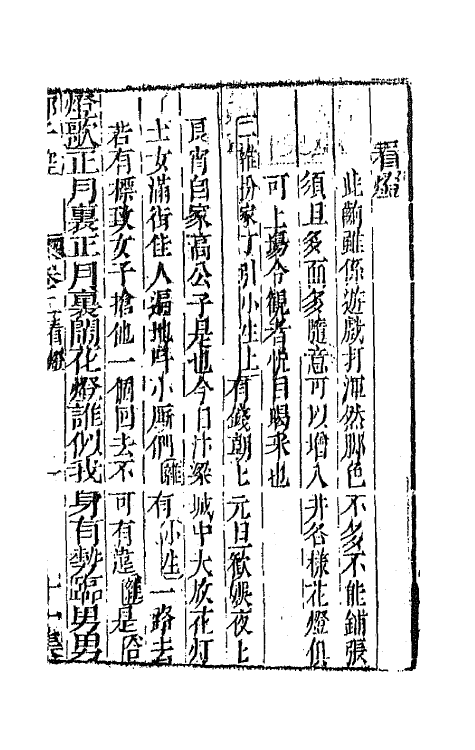 看燈
此齣雖係遊戲打渾然脚色不多不能鋪張
須且多面多隨意可以增入井各樣花燈俱
可上塲令觀者悅目喝采也
三雜扮家丁引小生上有錢朝上元日歡娛夜上
良宵自家高公子是也今日汴梁城中大放花灯
士女滿街住人遍地吽小厮們雜有小生一路去
若有標致女子搶他一個回去不可有違雜是合
燈歌正月裏正月裏鬧花燈誰似我身有勢臨男男
卷二看燈